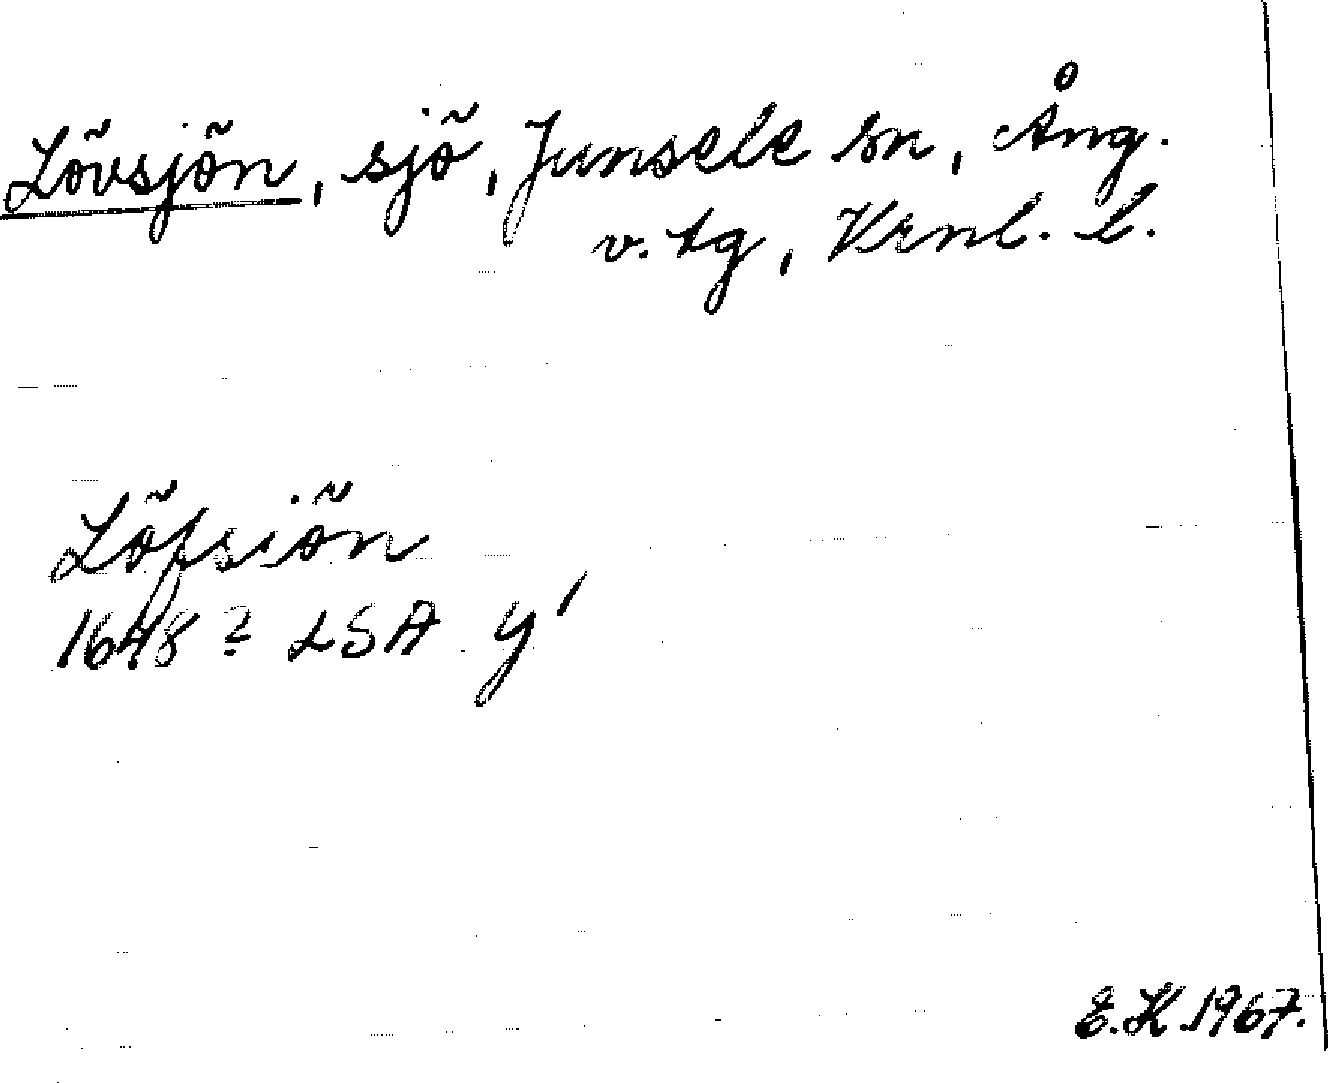 Lövsjön, sjö, Junsele sn, Ång.
v. tg, Krnl. l.
Löfsiön
1648? LSA y'
E.K. 1967.